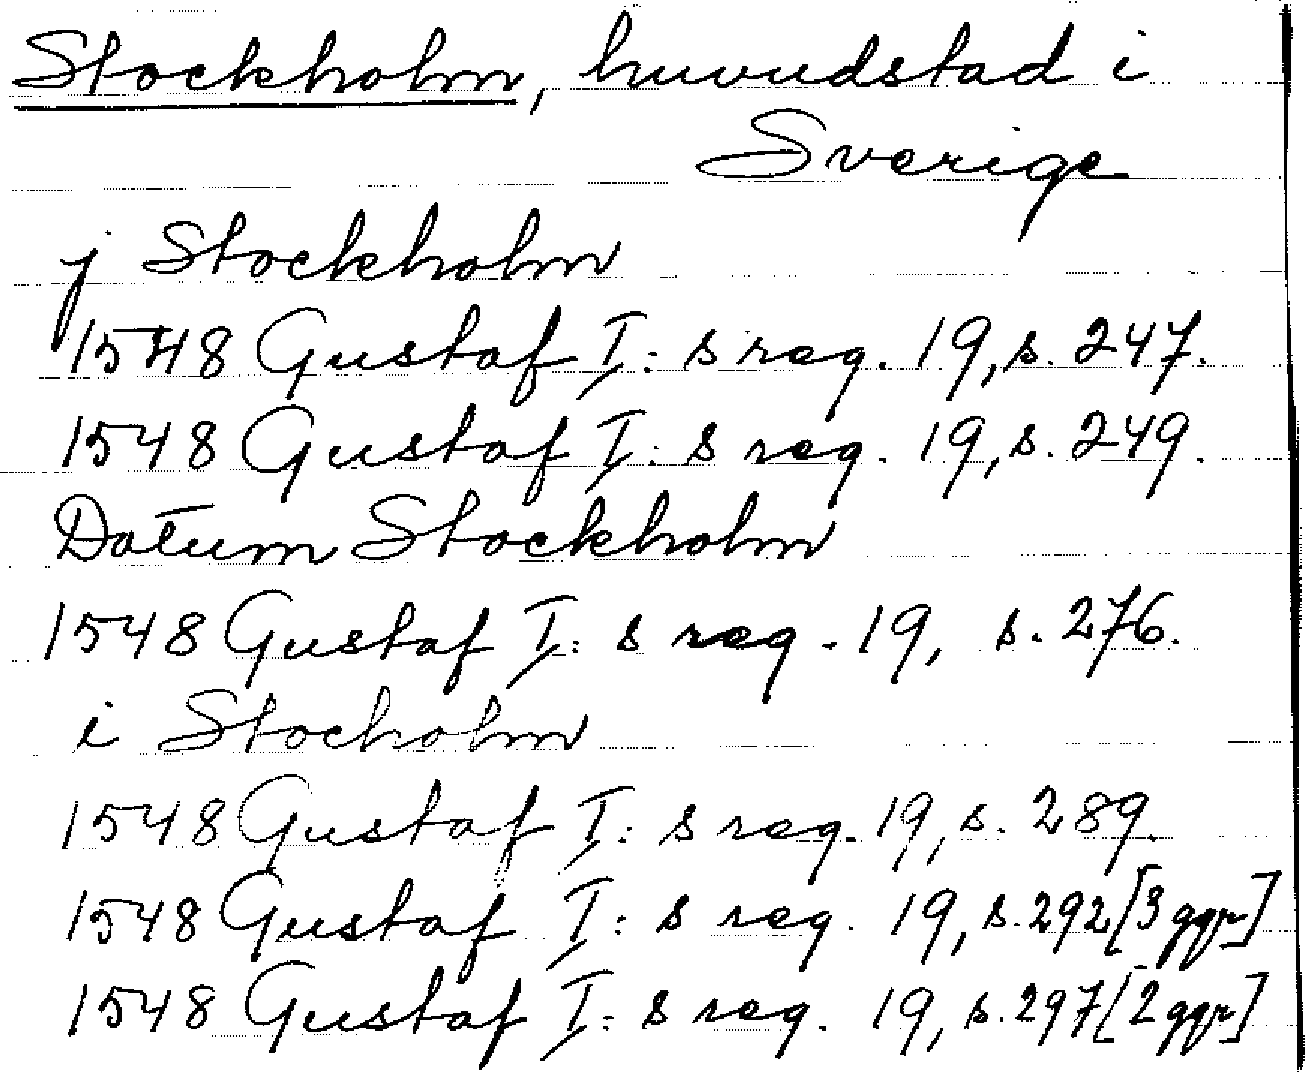 Stockholm, huvudstad i
Sverige
j Stockholm
1548 Gustaf I: s reg. 19, s. 247.
1548 Gustaf I: s reg. 19, s. 249.
Datum Stockholm
1548 Gustaf I: s reg. 19, s. 276.
i Stocholm
1548 Gustaf I: s reg. 19, s. 289.
1548 Gustaf I: s reg. 19, s. 292 [3 ggr]
1548 Gustaf I: s reg. 19, s. 297 [2 ggr]